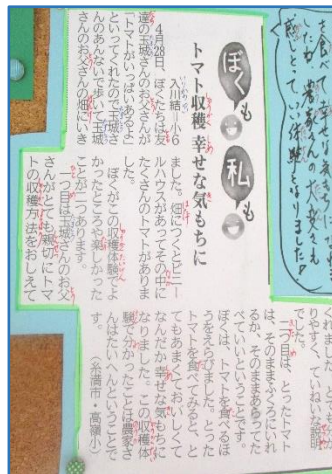 たが、農家さんの大変さも
感じとっていい体験となりました!
ぼくも
私も
トマト収穫 幸せな気もちに
入川結一小6
4月28日、ぼくたちは友
達の玉城さんのお父さんが
「トマトがいっぱいあるよ」
といってくれたので玉城さ
んのあんないで歩いて玉城
さんのお父さんの畑にいき
ました。畑につくとビニー
ルハウスがあってその中に
たくさんのトマトがありま
した。
ぼくがこの収穫体験でよ
かったところや楽しかった
ことが二つあります。
一つ目は玉城さんのお父
さんがとても親切にトマ
トの収穫方法をおしえて
くれました。
りやすく、ていねいな説明
でした。
二つ目は、とったトマト
は、そのままふくろにいれ
るか、そのままあらってた
べていいということです。
ぼくは、トマトを食べるほ
うをえらびました。とった
トマトを食べてみると、と
てもあまくておいしくて
なんだか幸せな気もちに
なりました。この収穫体
験で分かったことは農家さ
んはたいへんということで
す。（糸満市・高嶺小）